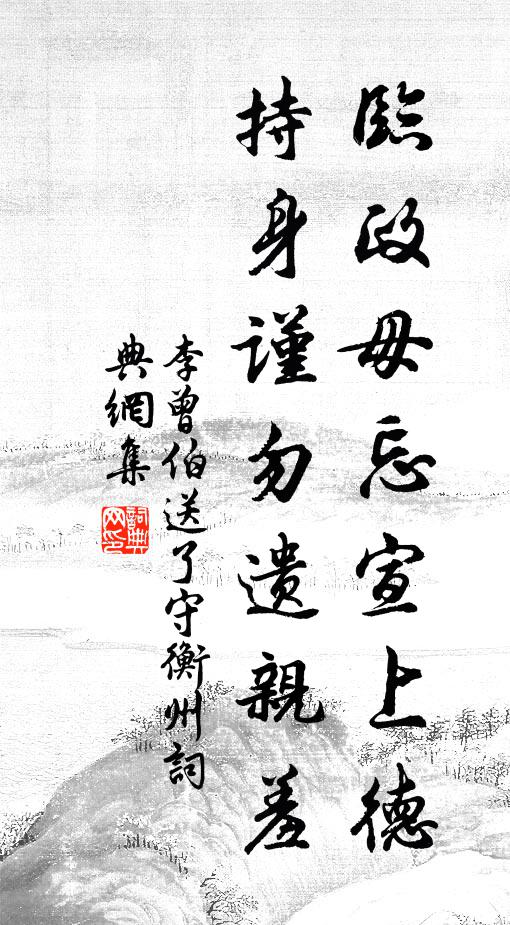 臨政毋忘宣上德
持身謹勿遺親羞
李曾伯送了守衡州詞
典網集
詞典網印